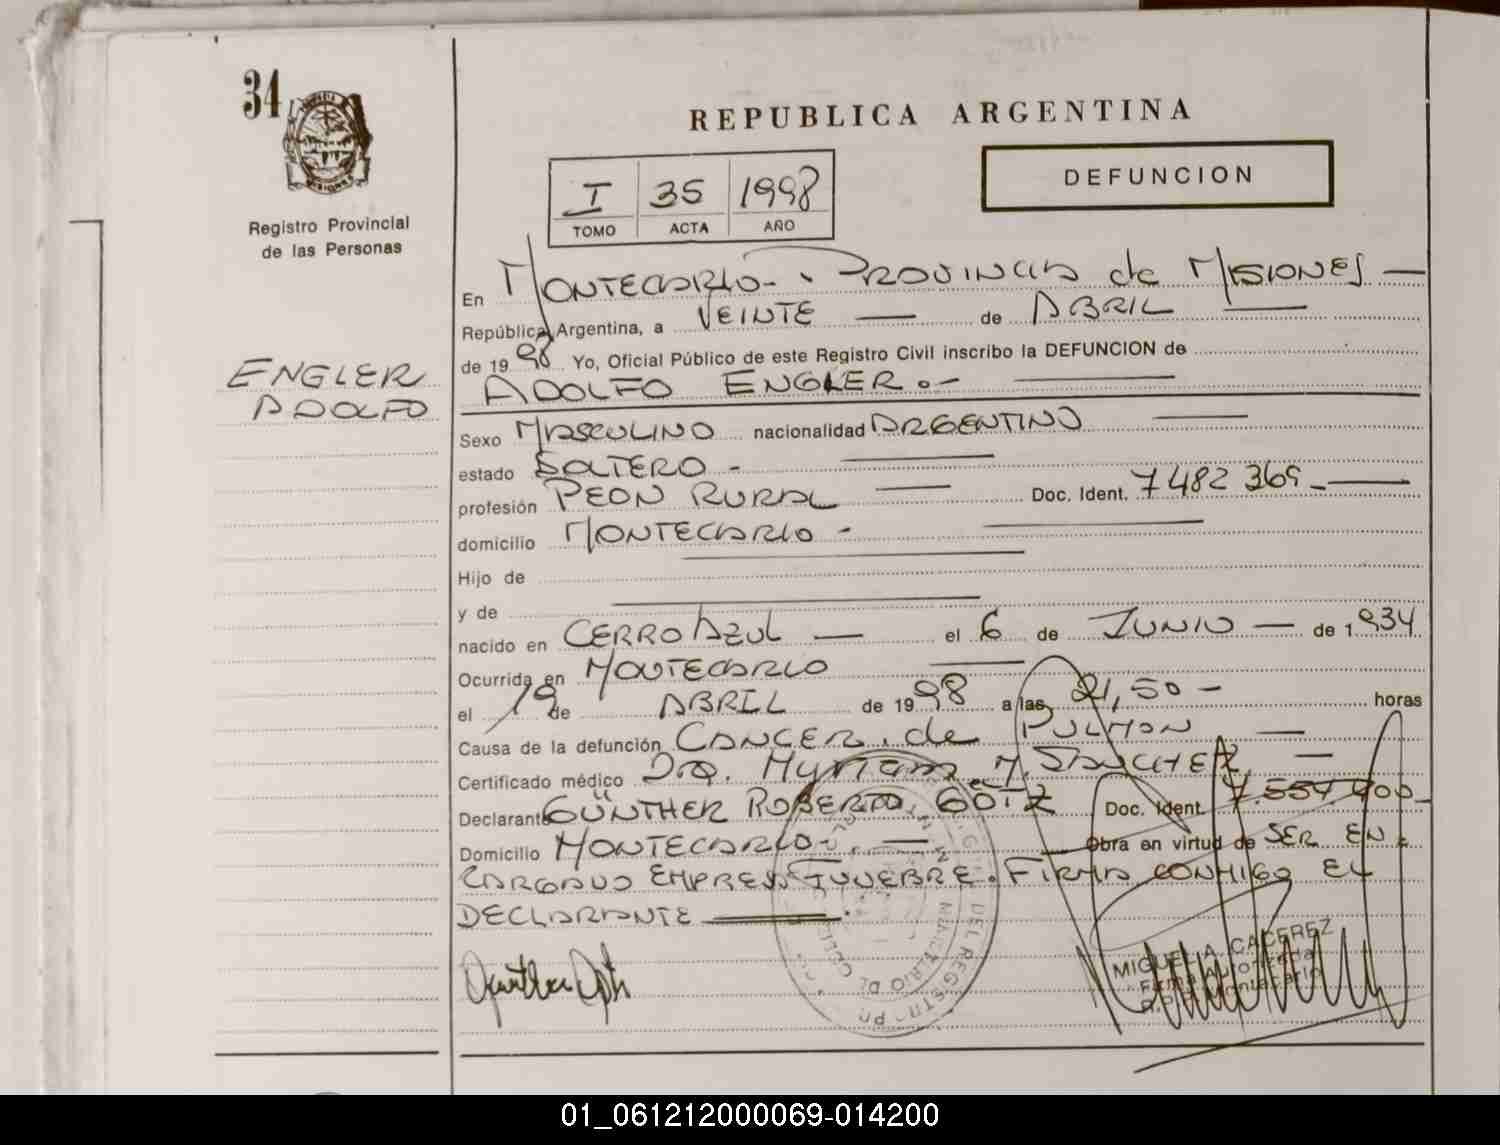 34
REPUBLICA ARGENTINA
DEFUNCION
I 35 1998
TOMO ACTA AÑO
Registro Provincial
de las Personas
ENGLER
ADOLFO
En MONTECARLO - PROVINCIA de MISIONES —
República Argentina, a VEINTE — de ABRIL —
de 1998 Yo, Oficial Público de este Registro Civil inscribo la DEFUNCION de
ADOLFO ENGLER.- —
Sexo MASCULINO nacionalidad ARGENTINO —
estado SOLTERO - —
profesión PEON RURAL — Doc. Ident. 7482 369 - —
domicilio MONTECARLO - —
Hijo de —
y de —
nacido en CERRO AZUL — el 6 de JUNIO — de 1934
Ocurrida en MONTECARLO —
el 19 de ABRIL de 1998 a las 21,50 - horas
Causa de la defunción CANCER de PULMON —
Certificado médico Dra. Myriam M. SANCHEZ —
Declarante GÜNTHER ROBERTO GÖTZ Doc. Ident. 7.557.400 -
Domicilio MONTECARLO - — Obra en virtud de SER EN
CARGADO EMPRESA FUNEBRE. FIRMA CONMIGO EL
DECLARANTE —.
MIGUEL A. CACEREZ
Firma Autorizada
R.P.P. Montecarlo
01_061212000069-014200